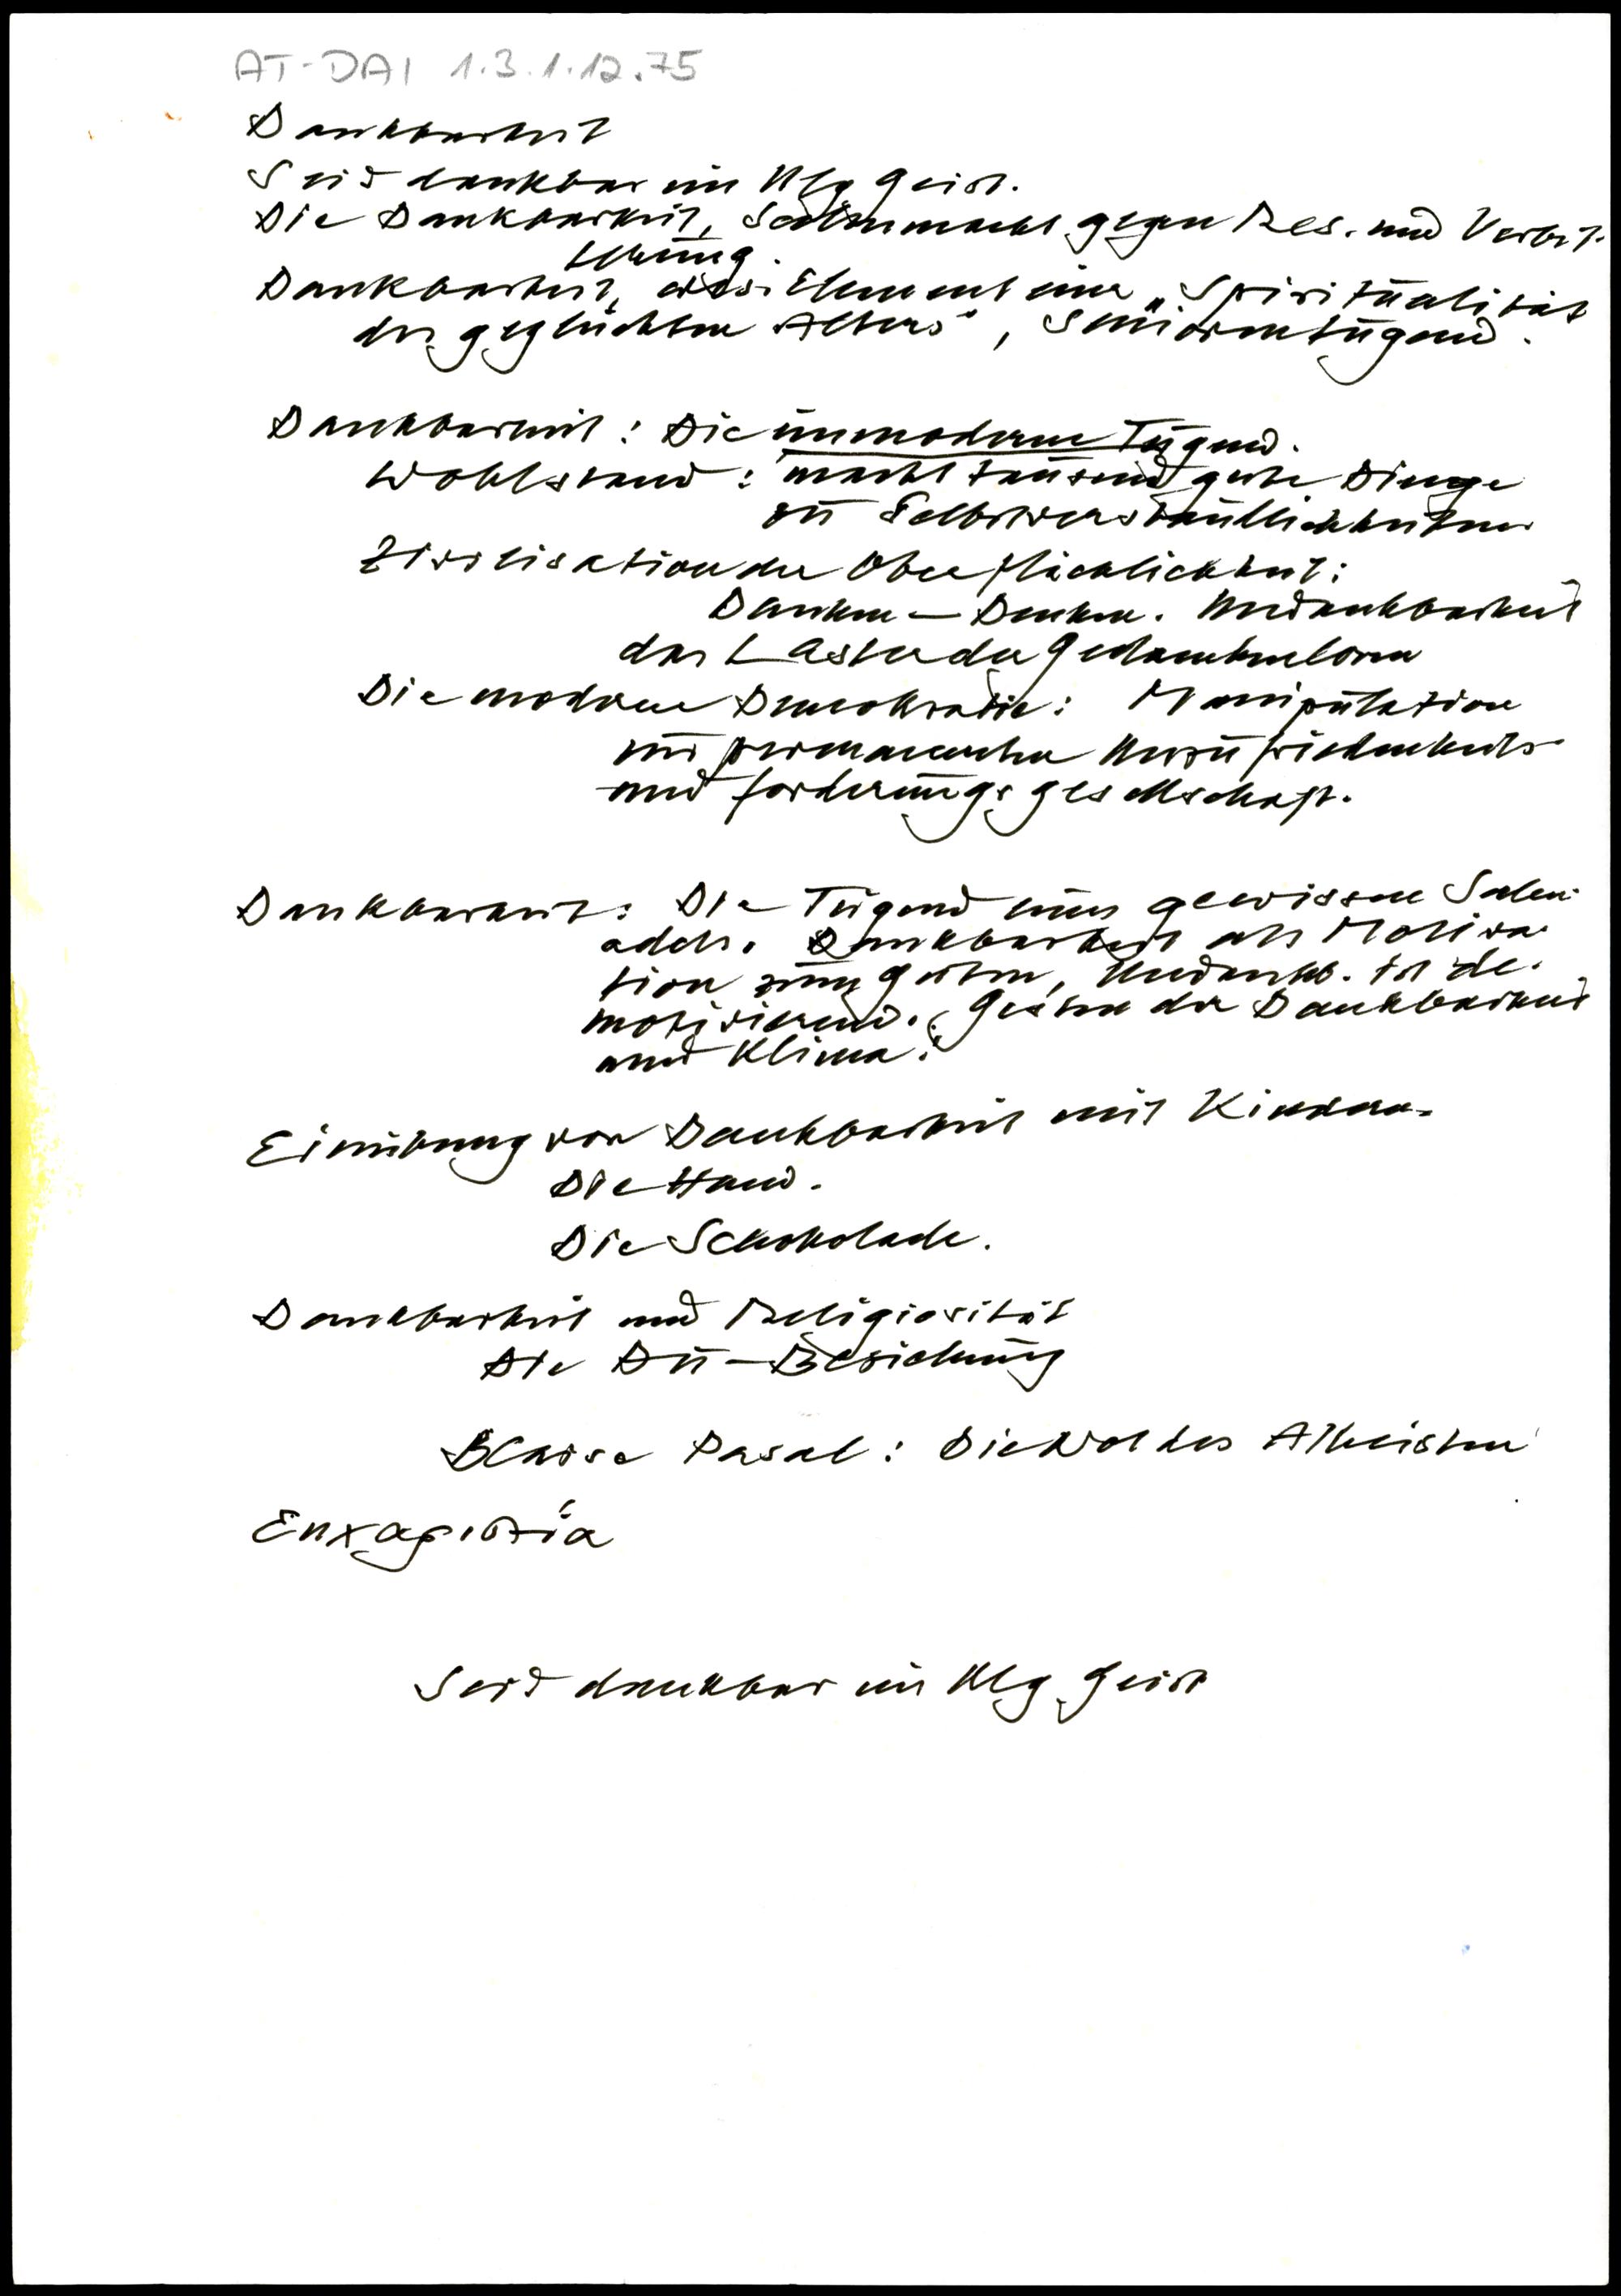 AT-DAI 1.3.1.12.75
Dankbarkeit
Seid dankbar im Hlg Geist.
Die Dankbarkeit, Seelenmacht gegen Res. und Verbit-
terung.
Dankbarkeit, Element einer „Spiritualität
des geglückten Alters", Seniorentugend.
Dankbarkeit: Die unmoderne Tugend.
Wohlstand: macht tausend gute Dinge
zu Selbstverständlichkeiten
Zivilisation der Oberflächlichkeit:
Danken – Denken. Undankbarkeit
das Laster der Gedankenlosen
Die moderne Demokratie: Manipulation
zur permanenten Unzufriedenheits-
und forderungsgesellschaft.
Dankbarkeit: Die Tugend eines gewissen Seelen-
adels. Dankbarkeit als Motiva-
tion zum Guten, Undankb. ist de-
motivierend. Gesten der Dankbarkeit
und Klima.
Einübung von Dankbarkeit mit Kindern.
Die Hand.
Die Schokolade.
Dankbarkeit und Religiosität
Die Du-Beziehung
Blaise Pasal: Die Not des Atheisten
Ευχαριστία
Seid dankbar im Hlg Geist